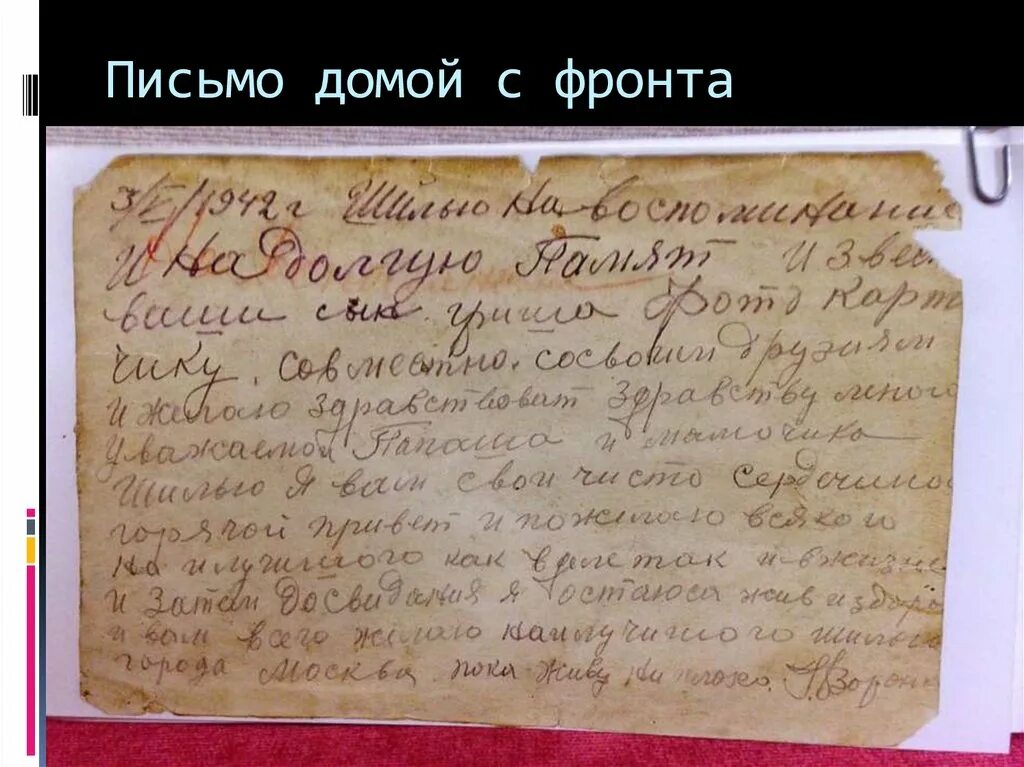 Письмо домой с фронта
3/V/1942 г Шилью на воспоминание
и на долгую Памят извес
ваши сын гриша Фото карт
чику. совместно. сосвоими друзиям
и желаю здравствоват здравству много
уважаемой Папаша и мамочика
Шилью я вам свой чисто сердечино
горячой привет и пожелаю всякого
на илучишого как вам так и вжизне
и затем Досвидания я остаюса жив издоро
и вам всего желаю наилучишого
города Москва, пока живу ни плохо.